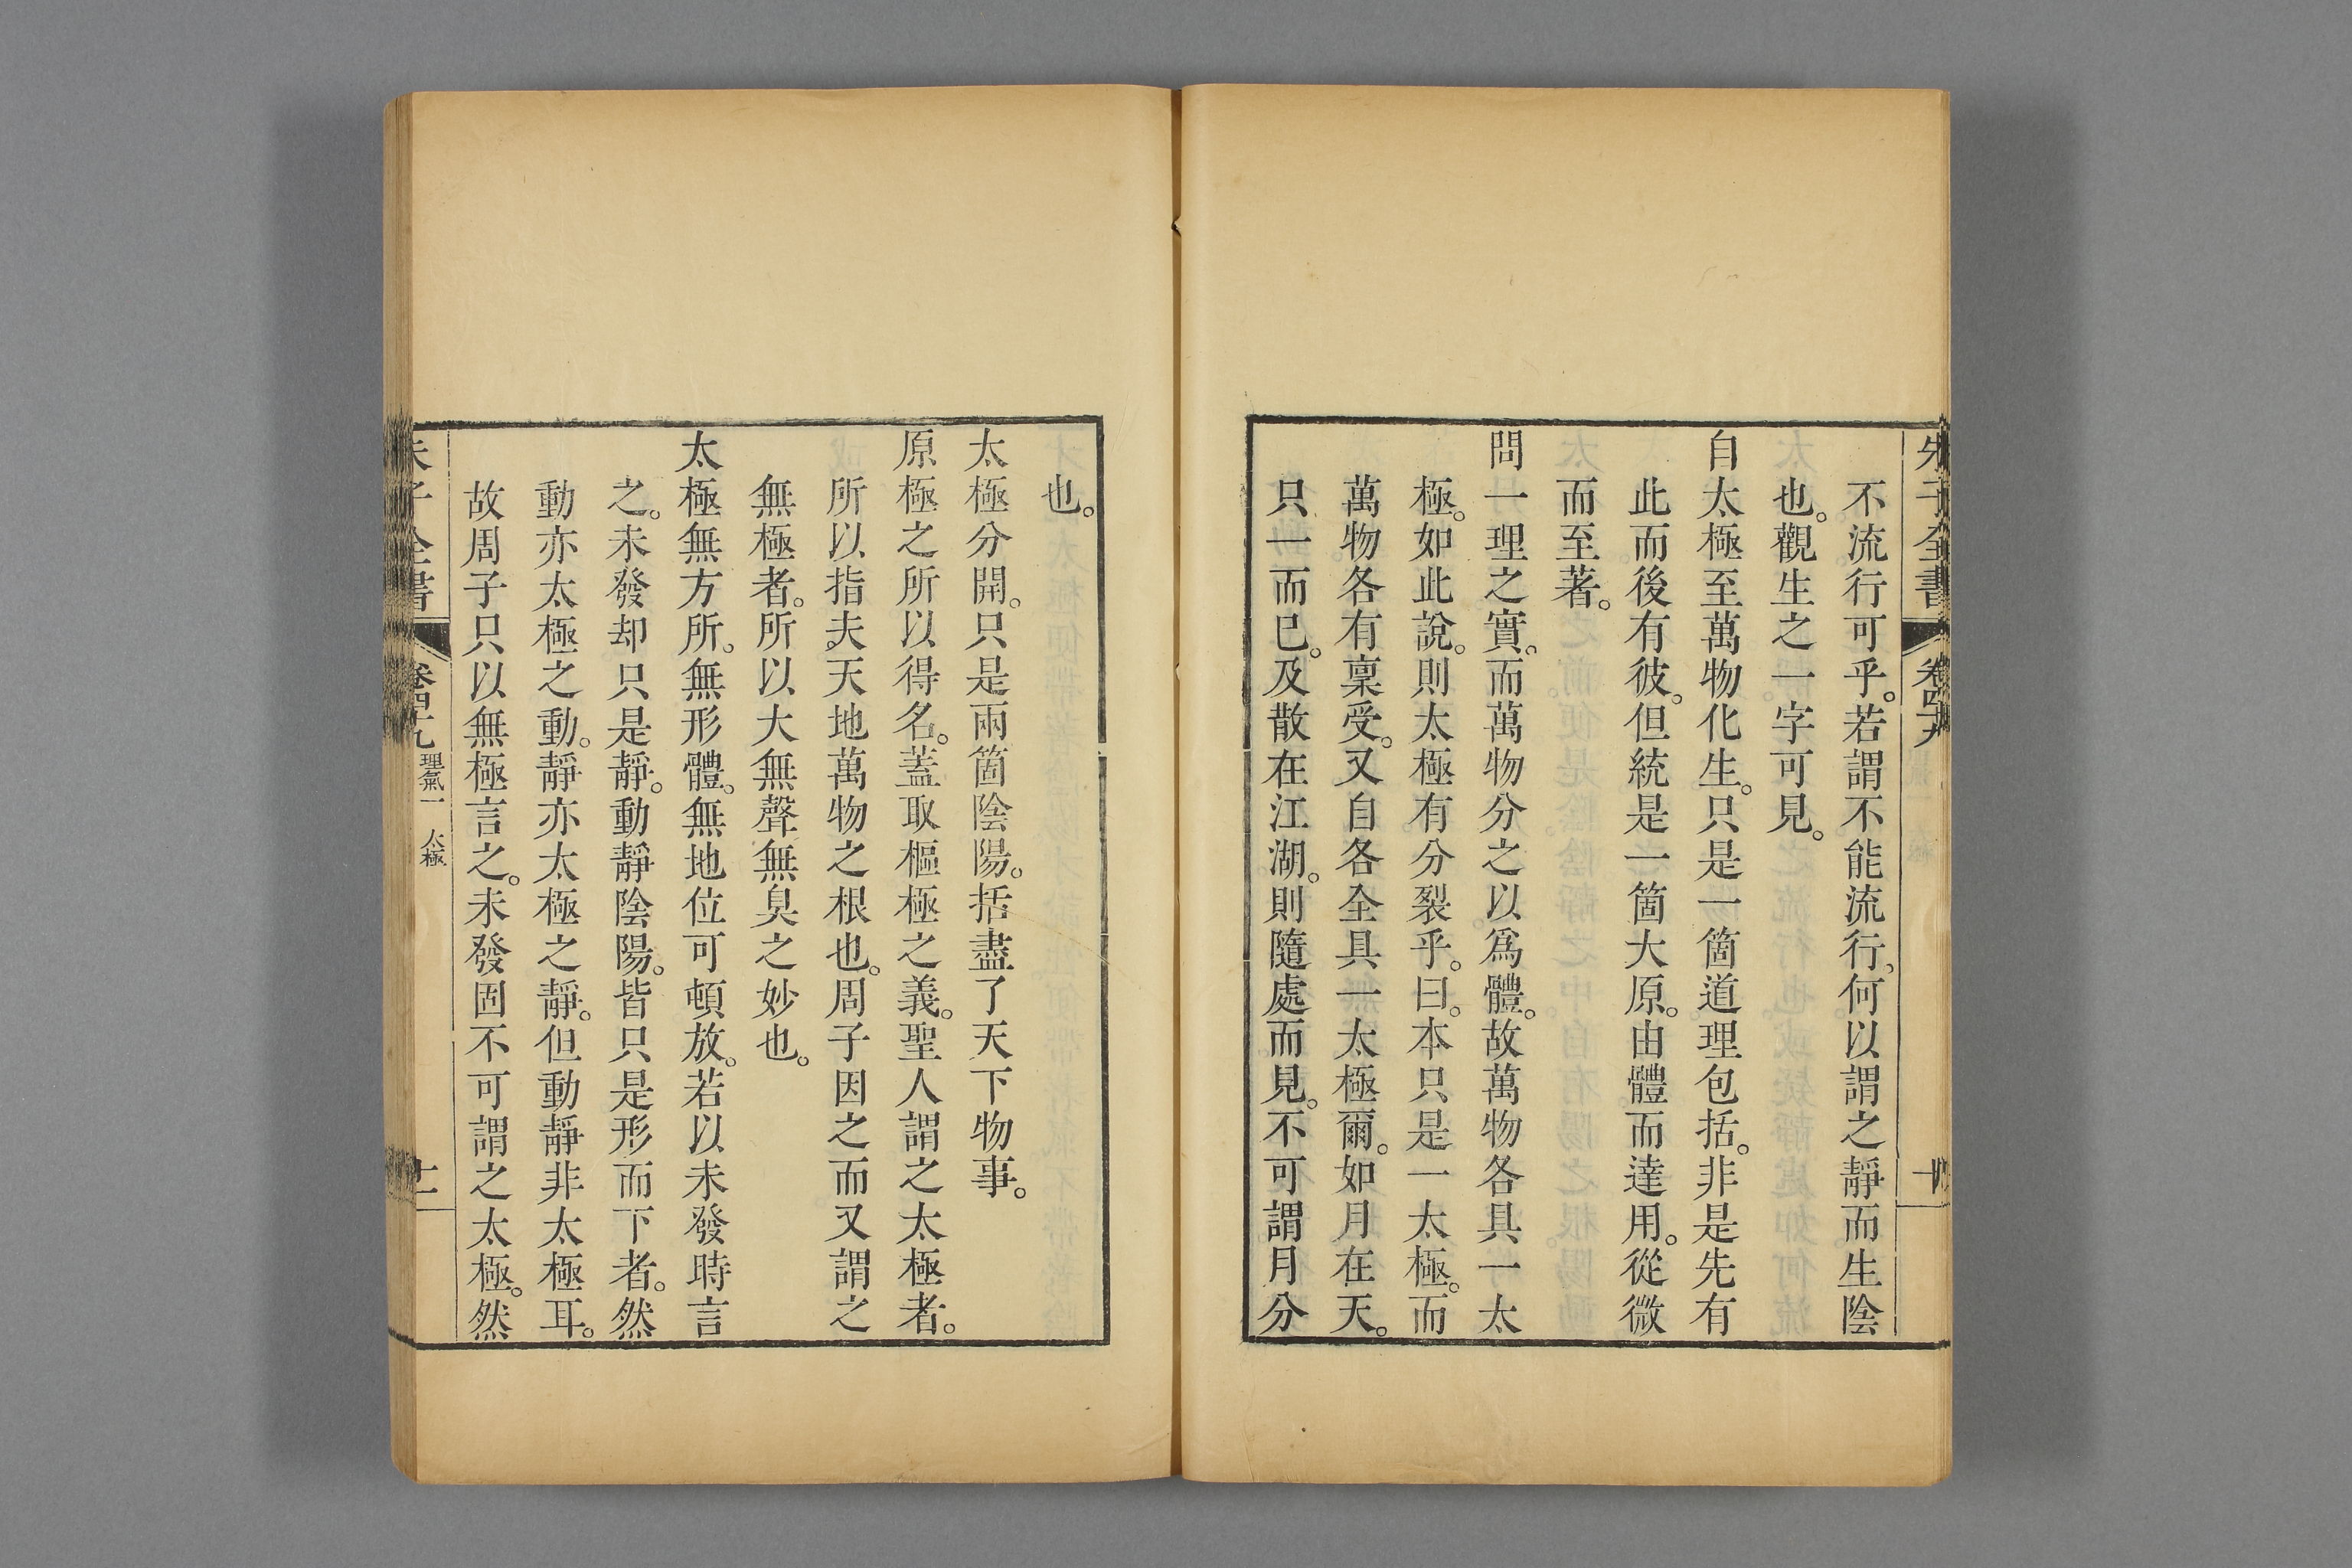 朱子全書 卷四十九 十
不流行可乎。若謂不能流行。何以謂之靜而生陰
也。觀生之一字可見。
自太極至萬物化生。只是一箇道理包括。非是先有
此而後有彼。但統是一箇大原。由體而達用。從微
而至著。
問一理之實。而萬物分之以爲體。故萬物各具一太
極。如此說。則太極有分裂乎。曰。本只是一太極。而
萬物各有稟受。又自各全具一太極爾。如月在天。
只一而已。及散在江湖。則隨處而見。不可謂月分
也。
太極分開。只是兩箇陰陽。括盡了天下物事。
原極之所以得名。蓋取樞極之義。聖人謂之太極者。
所以指夫天地萬物之根也。周子因之而又謂之
無極者。所以大無聲無臭之妙也。
太極無方所。無形體。無地位可頓放。若以未發時言
之。未發却只是靜。動靜陰陽。皆只是形而下者。然
動亦太極之動。靜亦太極之靜。但動靜非太極耳。
故周子只以無極言之。未發固不可謂之太極。然
朱子全書 卷四十九 理氣一 太極 十一